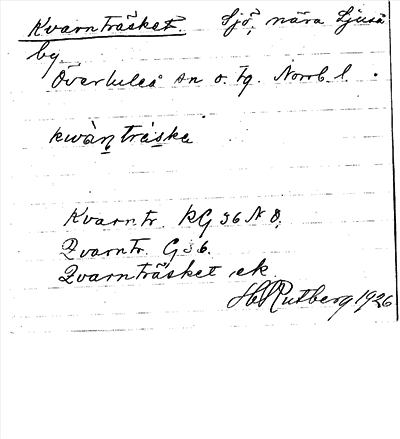 Kvarnträsket. Sjö, nära Ljuså
by
Överluleå sn o. tg. Norrb. l.
kwàn tráska
Kvarntr. RG 36 N 8.
Qvarntr. G 36.
Qvarnträsket, ek
H Rutberg 1926